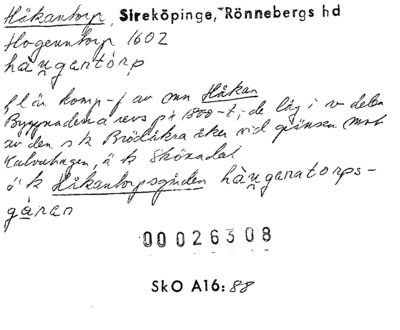 Håkantorp, Sireköpinge, Rönnebergs hd
Hogenntorp 1602
hàṇgantórp
f l är komp-f av mn Håkan
Byggnaderna revs på 1800-t; de låg i v delen
av den s k Brödåkra åker vid gränsen mot
Kalvahagen, ä k Skönadal
ä k Håkantorpsgården hàṇganatorps-
gáren
00026308
SkO A16:88